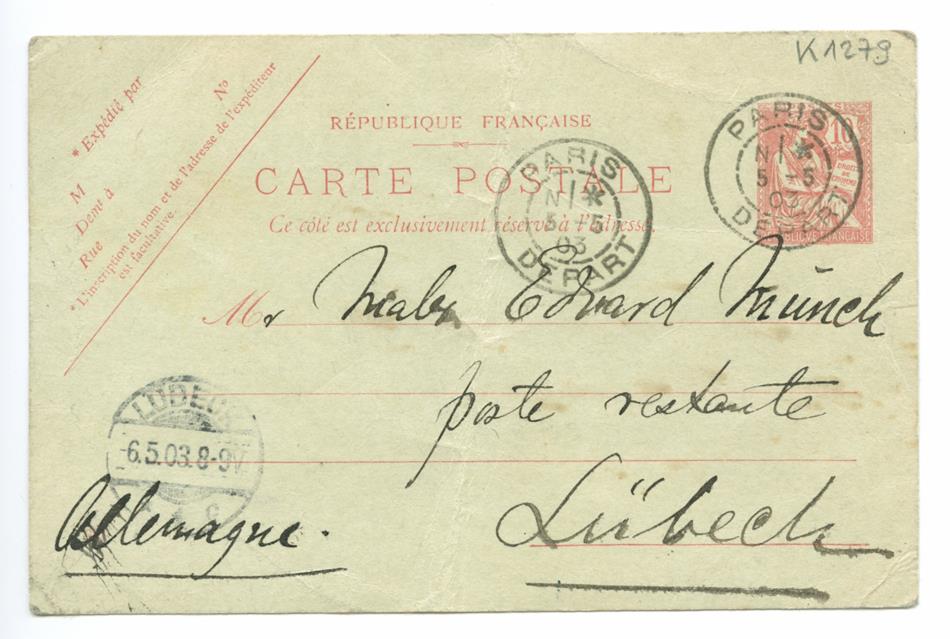 K1279
* Expédié par
N°
M
Demt à
Rue
* L'inscription du nom et de l'adresse de l'expéditeur
est facultative.
RÉPUBLIQUE FRANÇAISE
CARTE POSTALE
Ce côté est exclusivement réservé à l'adresse.
PARIS
N 1 *
5 - 5
03
DEPART
PARIS
N 1 *
5 - 5
03
DEPART
10
DROITS
DE
L'HOMME
RÉPUBLIQUE FRANÇAISE
Mr Maler Edvard Münch
poste restante
Lübeck
LÜBECK
6.5.03.8-9V
C
Allemagne.